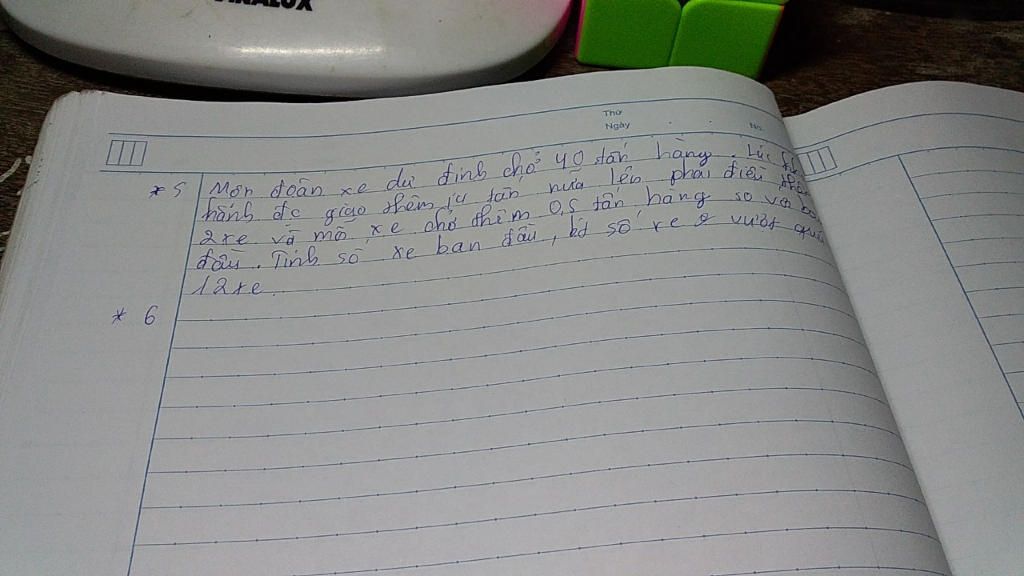 ANALUX
Thứ
Ngày
No.
* 5 Một đoàn xe dự định chở 40 tấn hàng. Lúc
hành đc giao thêm 14 tấn nữa lên phải điều thêm
2 xe và mỗi xe chở thêm 0,5 tấn hàng so với
đầu. Tính số xe ban đầu, số xe vượt quá
12 xe.
* 6